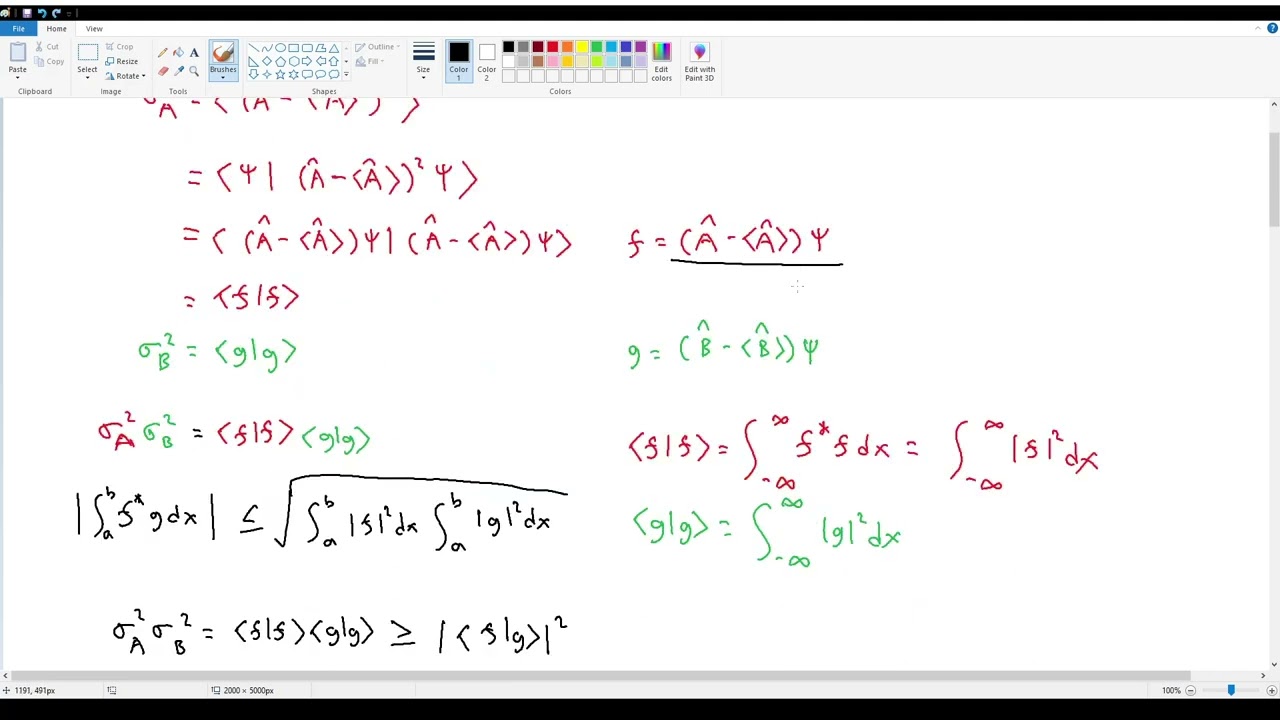 File Home View
Paste Cut Copy Clipboard
Select Crop Resize Rotate Image
A Tools
Brushes
Outline Fill Shapes
Size
Color 1 Color 2 Edit colors Colors
Edit with Paint 3D
σ_A^2 = ⟨(Â - ⟨Â⟩)^2⟩
= ⟨Ψ| (Â - ⟨Â⟩)^2 Ψ⟩
= ⟨(Â - ⟨Â⟩)Ψ | (Â - ⟨Â⟩)Ψ⟩ f = (Â - ⟨Â⟩)Ψ
= ⟨f|f⟩
σ_B^2 = ⟨g|g⟩ g = (B̂ - ⟨B̂⟩)Ψ
σ_A^2 σ_B^2 = ⟨f|f⟩⟨g|g⟩ ⟨f|f⟩ = ∫_{-∞}^{∞} f* f dx = ∫_{-∞}^{∞} |f|^2 dx
|∫_a^b f* g dx| ≤ √(∫_a^b |f|^2 dx ∫_a^b |g|^2 dx) ⟨g|g⟩ = ∫_{-∞}^{∞} |g|^2 dx
σ_A^2 σ_B^2 = ⟨f|f⟩⟨g|g⟩ ≥ |⟨f|g⟩|^2
1191, 491px 2000 × 5000px 100%